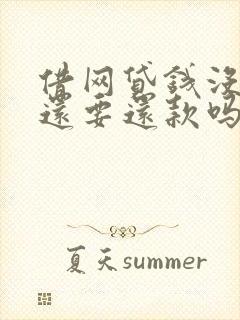 借网贷钱没
还要还款吗
夏天summer